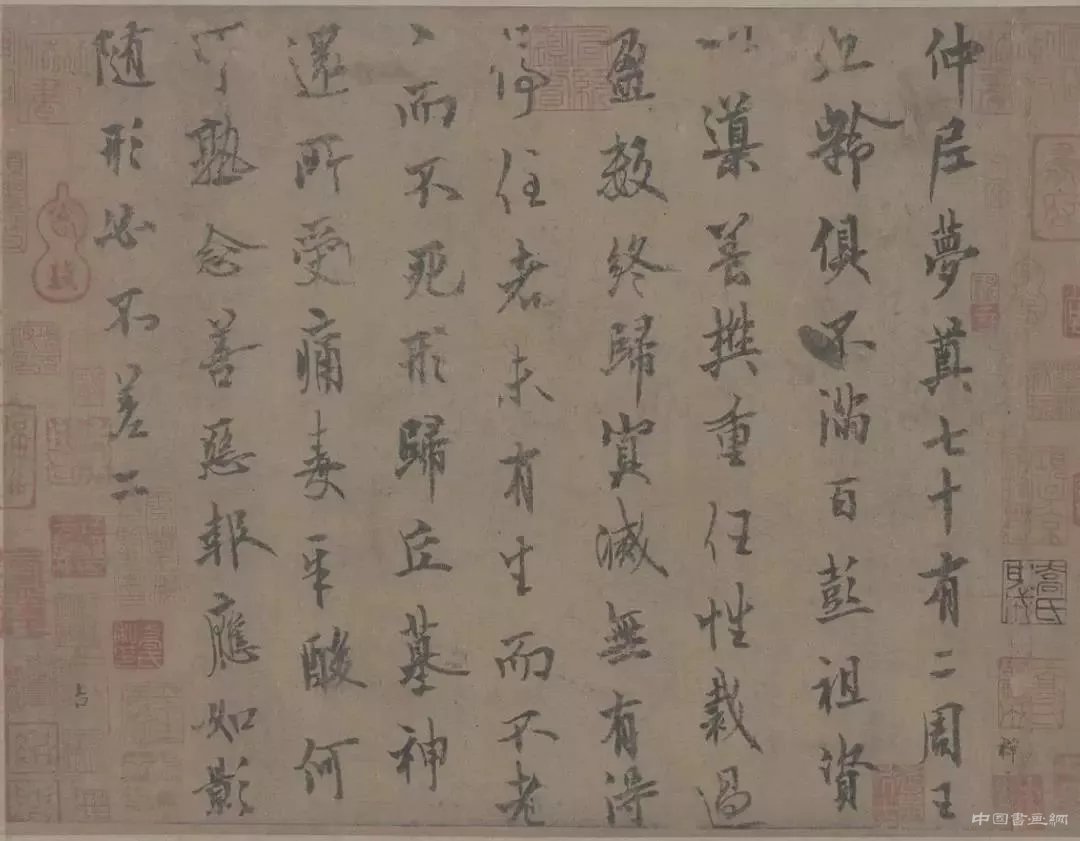 仲尼夢奠七十有二周王
九齡俱不滿百彭祖資
以導養樊重任性裁過
盈數終歸冥滅無有得
停住者未有生而不老
々而不死形歸丘墓神
還所受痛毒辛酸何
可熟念善惡報應如影
隨形必不差二
中国書画網